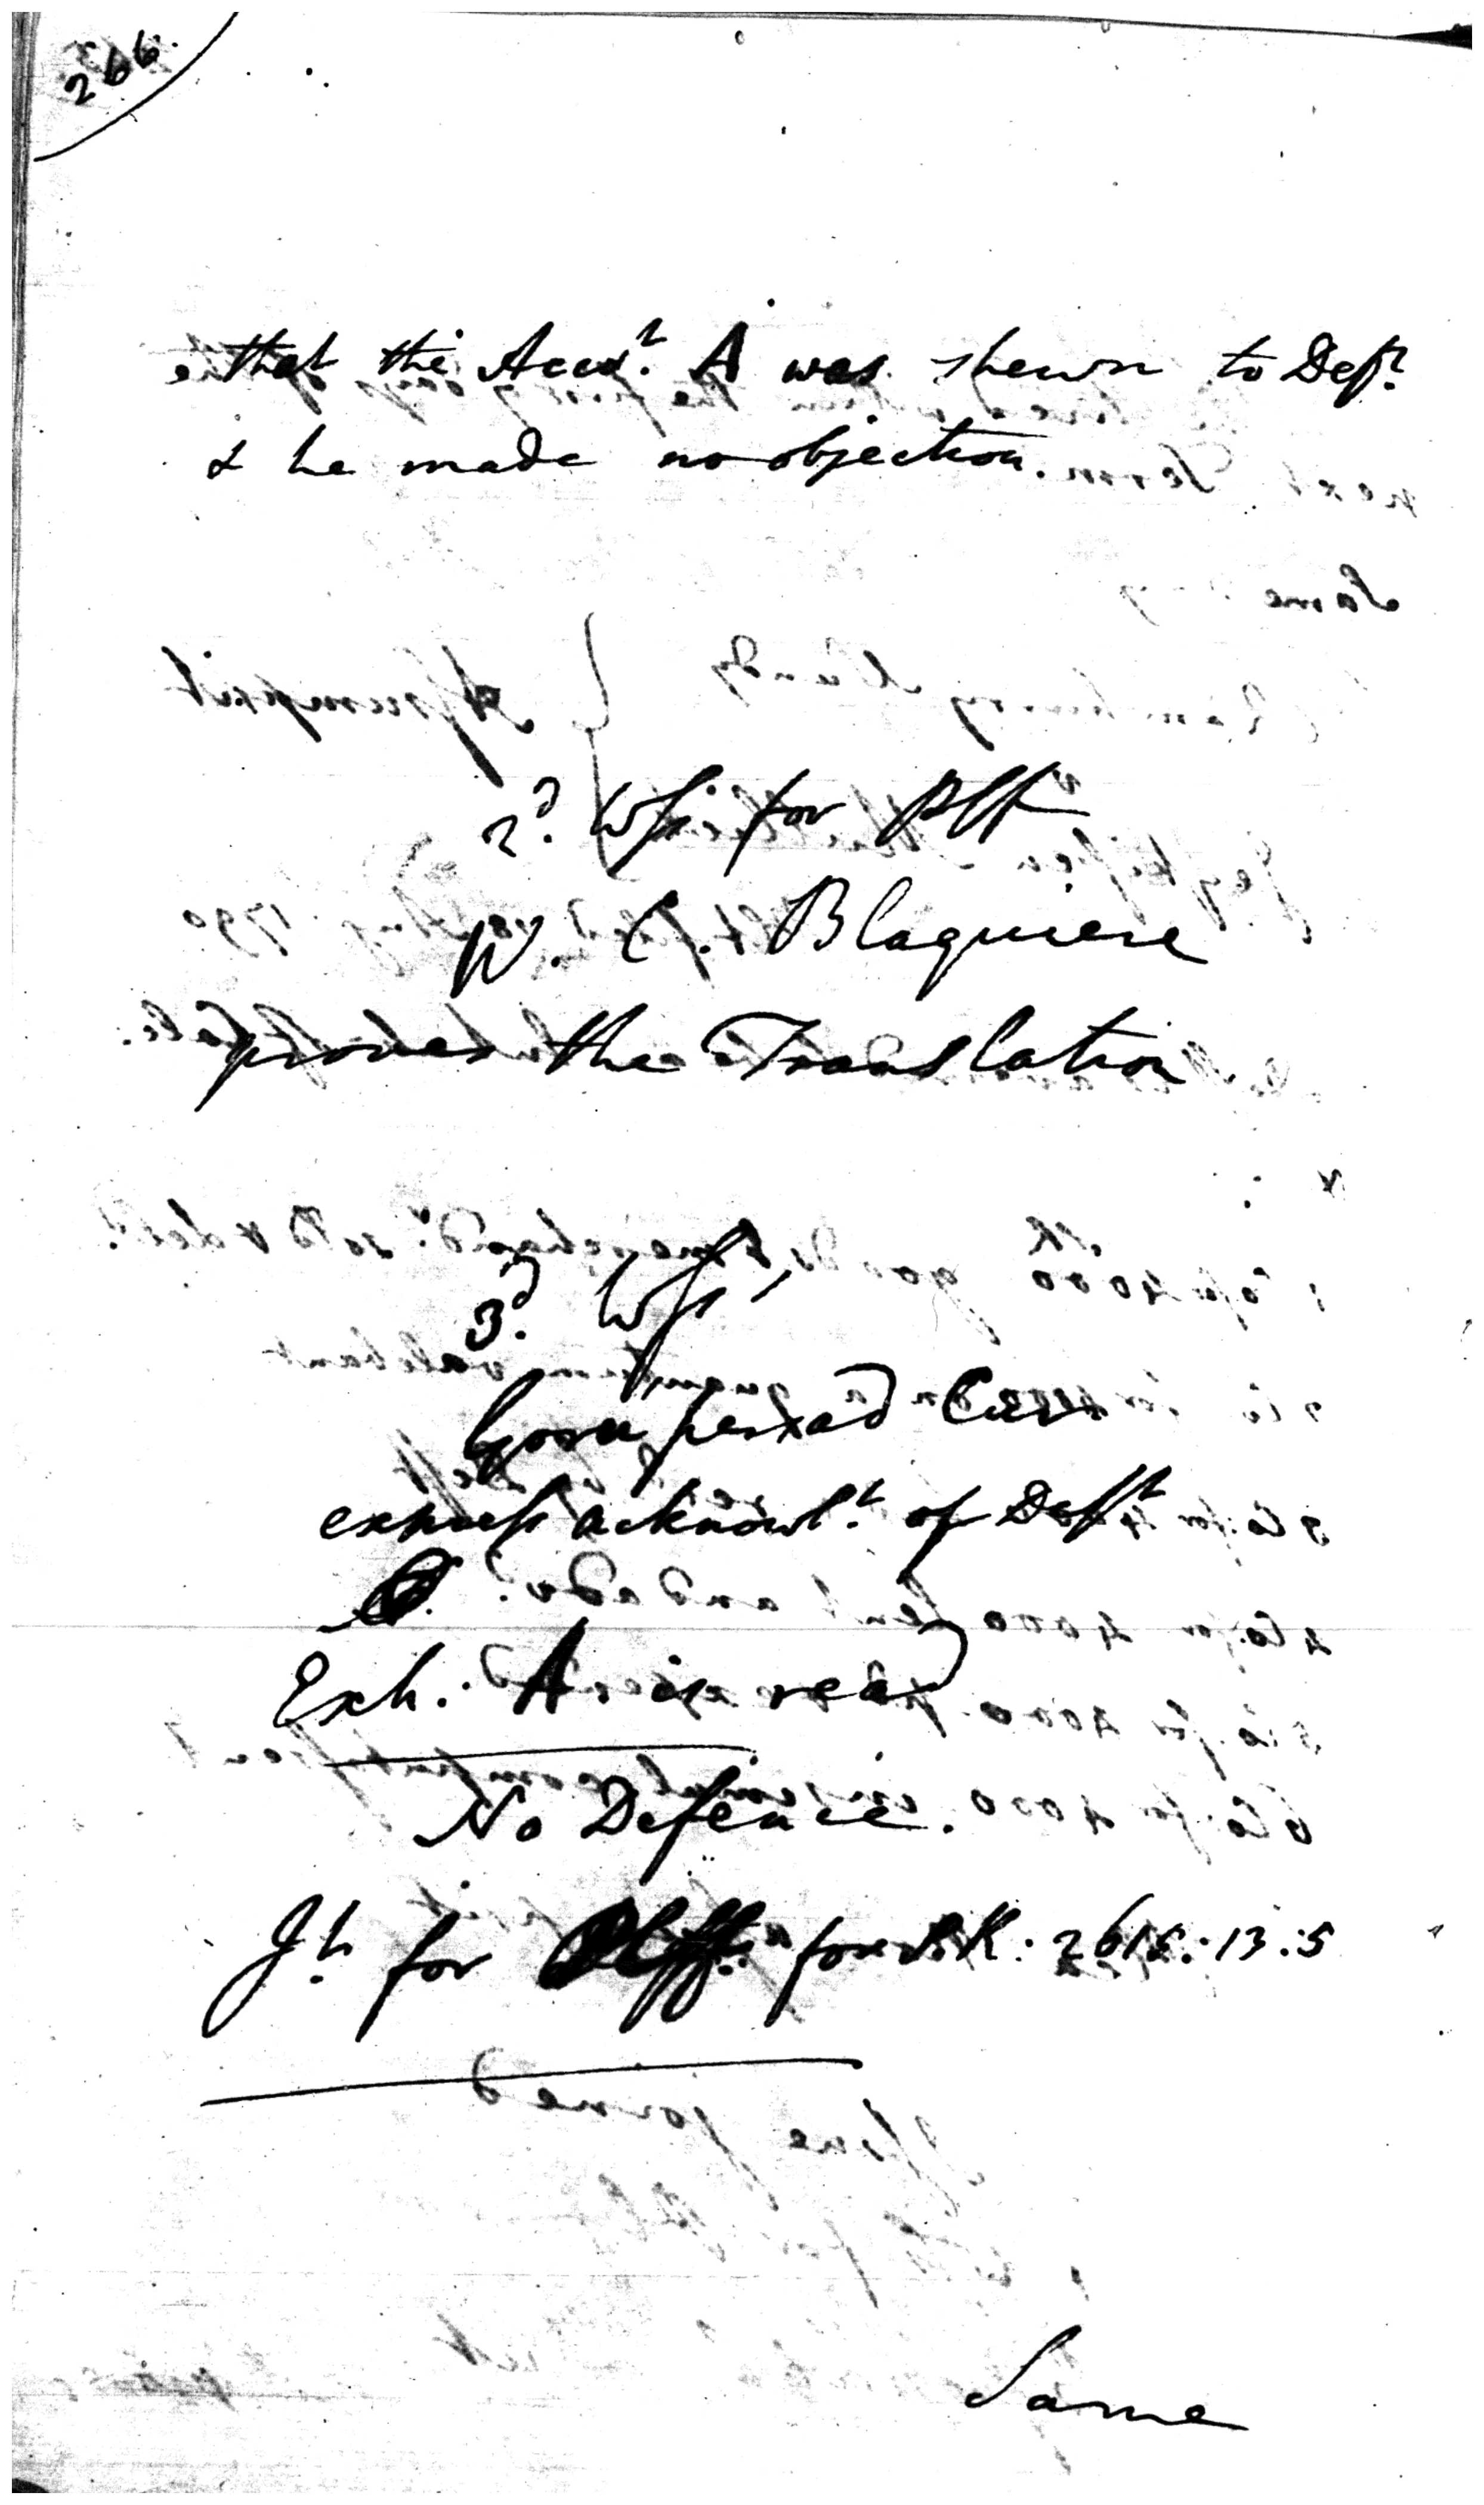 266.
that the Acco.t A was shewn to Def.t
& he made no objection.
2.d Wss for Plff
W. C. Blaquiere
proves the Translation
3.d Wss
Goraperxad
express acknowl.t of Deft
Exh: A is read
No Defence.
J.t for Plff. for S.R. 2615:13:5
Same